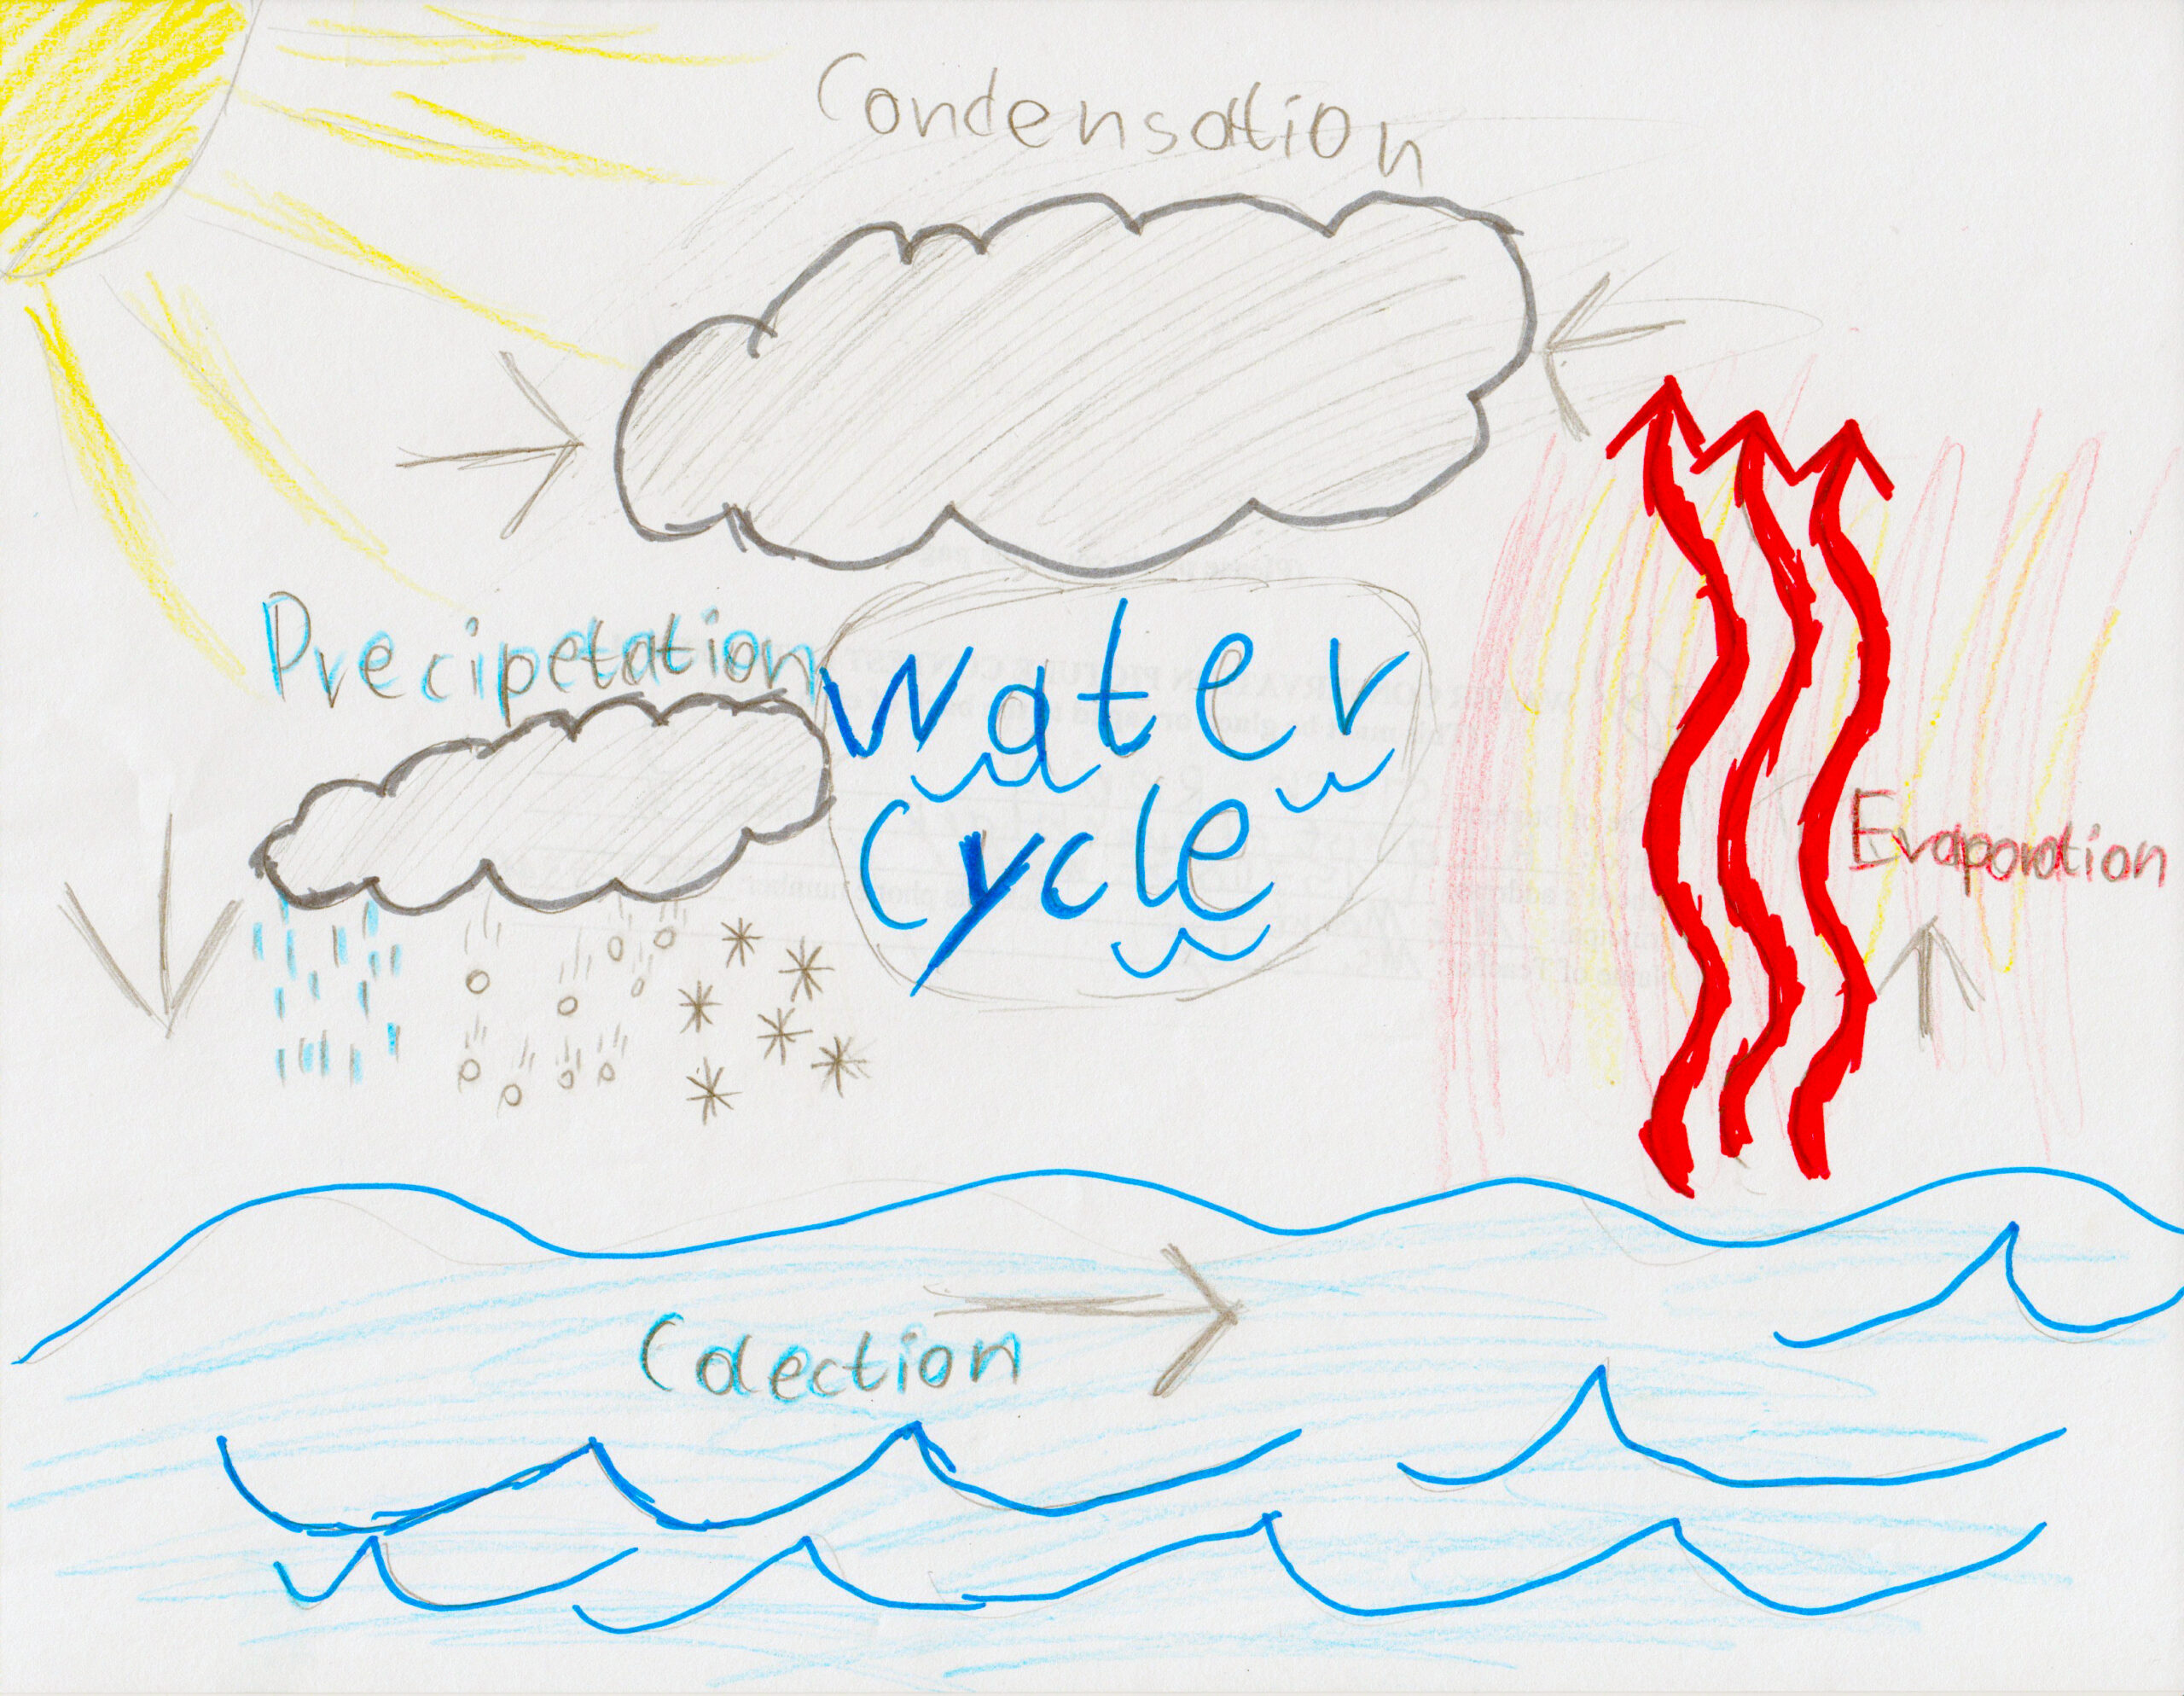 Condensation
Precipetation
Water
Cycle
Evaporation
Colection